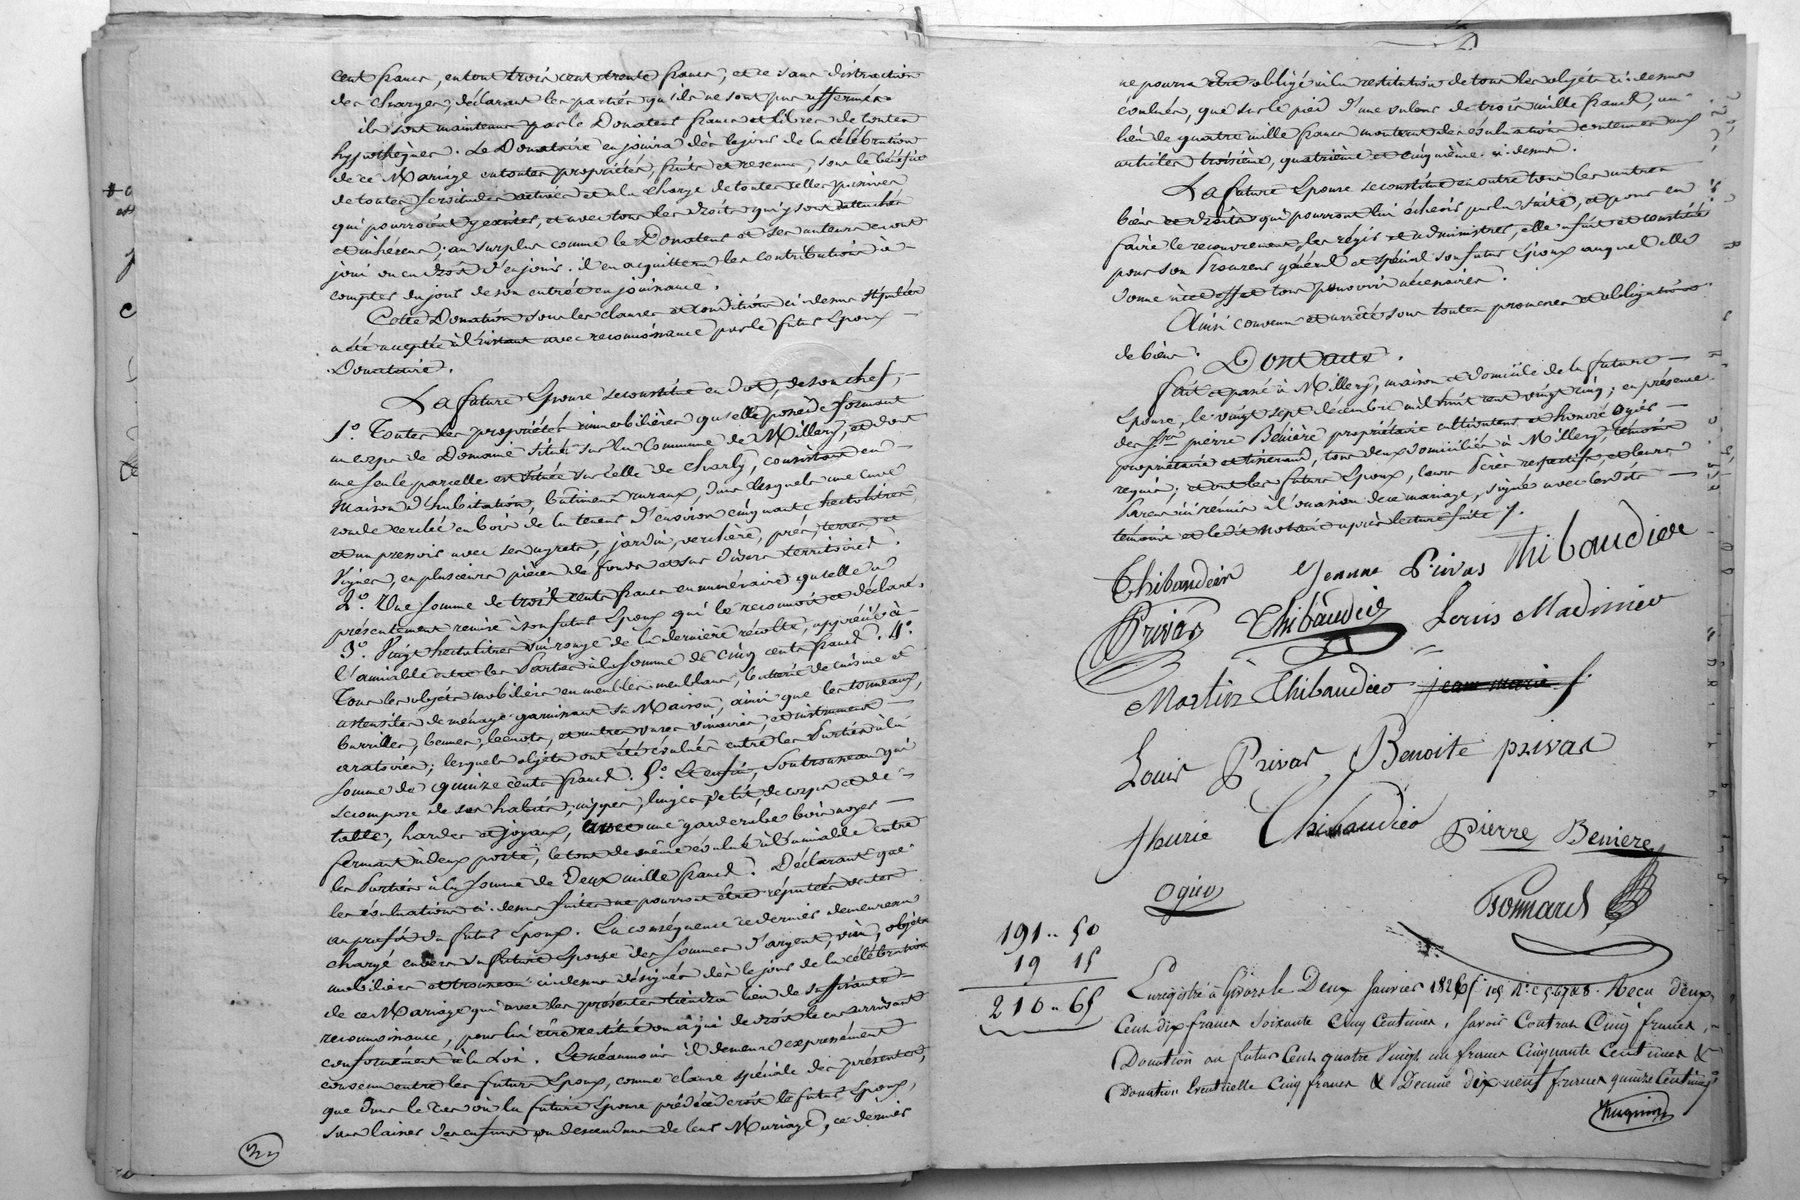 cent francs, en tout trois cent trente francs, et ce sans distraction
des charges, déclarant les parties qu'ils ne sont pas affermés
ils sont maintenus par le Donateur francs et libres de toutes
hypothèques. Le Donataire en jouira dès le jour de la célébration
de ce Mariage en toutes propriétés, fruits et revenus, sous le bénéfice
de toutes servitudes actives et à la charge de toutes celles passives
qui pourroient y exister, et avec tous les droits qui y sont attachés
et inhérens; au surplus comme le Donateur et ses auteurs en ont
joui ou eu droit d'en jouir. il en acquittera les contributions à
compter du jour de son entrée en jouissance.
Cette Donation sous les clauses et conditions ci-dessus stipulées
a été acceptée à l'instant avec reconnoissance par le futur Epoux
Donataire.
La future Epouse se constitue en dot, de son chef,
1.° Toutes les propriétés immobilières qu'elle possède formant
un corps de Domaine situé sur la Commune de Millery, et dont
une seule parcelle est située sur celle de Charly, consistant en
Maison d'habitation, bâtimens ruraux, dans lesquels une cuve
ronde cerclée en bois de la teneur d'environ cinquante hectolitres
et un pressoir avec ses agrets, jardin, verchère, prés, terres et
Vignes, en plusieurs pièces de fonds et sur divers territoires.
2.° Une somme de trois cents francs en numéraire qu'elle a
présentement remise à son futur Epoux qui le reconnoit et déclare.
3.° Vingt hectolitres vin rouge de la dernière récolte, appréciés à
l'amiable entre les Parties à la somme de cinq cents francs. 4.°
Tous les objets mobiliers en meubles meublans, batterie de cuisine et
ustensiles de ménage garnissant sa Maison, ainsi que les tonneaux,
barrilles, bennes, bennots, et autres vases vinaires, et instrumens
aratoires; lesquels objets ont été évalués entre les Parties à la
somme de quinze cents francs. 5.° Et enfin, son trousseau qui
se compose de ses habits, nippes, linges petit, de corps et de
table, hardes et joyaux, avec une garderobe bois noyer
fermant à deux portes, le tout de même évalué à l'amiable entre
les Parties à la somme de Deux mille francs. Déclarant que
les évaluations ci-dessus faites ne pourront être réputées ventes
au profit du futur Epoux. En conséquence ce dernier demeurera
chargé envers sa future Epouse des sommes d'argent, vin, objets
mobiliers et trousseau ci-dessus désignés dès le jour de la célébration
de ce Mariage qui avec les présentes tiendra lieu de suffisante
reconnoissance, pour lui être restitué ou à qui de droit le cas arrivant
conformément à la Loi. Et néanmoins il demeure expressément
convenu entre les futurs Epoux, comme clause spéciale des présentes,
que dans le cas où la future Epouse prédécéderoit le futur Epoux,
sans laisser d'enfans ou descendans de leur Mariage, ce dernier
ne pourra être obligé à la restitution de tous les objets ci-dessus
évalués, que sur le pied d'une valeur de trois mille francs, au
lieu de quatre mille francs montant des évaluations contenues aux
articles troisième, quatrième et cinquième ci-dessus.
La future Epouse se constitue en outre tous les autres
biens et droits qui pourront lui échoir par la suite, et pour en
faire le recouvrement, les régir et administrer, elle a fait et constitué
pour son Procureur général et spécial son futur Epoux auquel elle
donne à ce effet tous pouvoirs nécessaires.
Ainsi convenu et arrêté sous toutes promesses et obligations
de biens. Dont acte.
Fait et passé à Millery, maison et domicile de la future
Epouse, le vingt sept décembre mil huit cent vingt cinq; en présence
des Srs pierre Bénière propriétaire cultivateur et honoré Ogier
propriétaire et tisserand, tous deux domiciliés à Millery, témoins
requis; et ont les futurs Epoux, leurs Pères respectifs, et leurs
Parens ici réunis à l'occasion de ce mariage, signé avec lesdits
témoins et ledit Notaire après lecture faite /.
Thibaudier Jeanne Privas Thibaudier
Privas Thibaudier Louis Madinier
Martin Thibaudier jean marie f.
Louis Privas Benoite privas
fleurie Thibaudier Pierre Beniere
Ogier Bonnard
191 .. 50
19 15
210 .. 65
Enregistré à Givors le Deux Janvier 1826 Reçu deux
Cent dix francs soixante Cinq Centimes. Savoir Contrat Cinq francs,
Donation au futur Cent quatre Vingt un francs Cinquante Centimes &
Donation Eventuelle Cinq francs & Decime dix neuf francs quinze Centimes